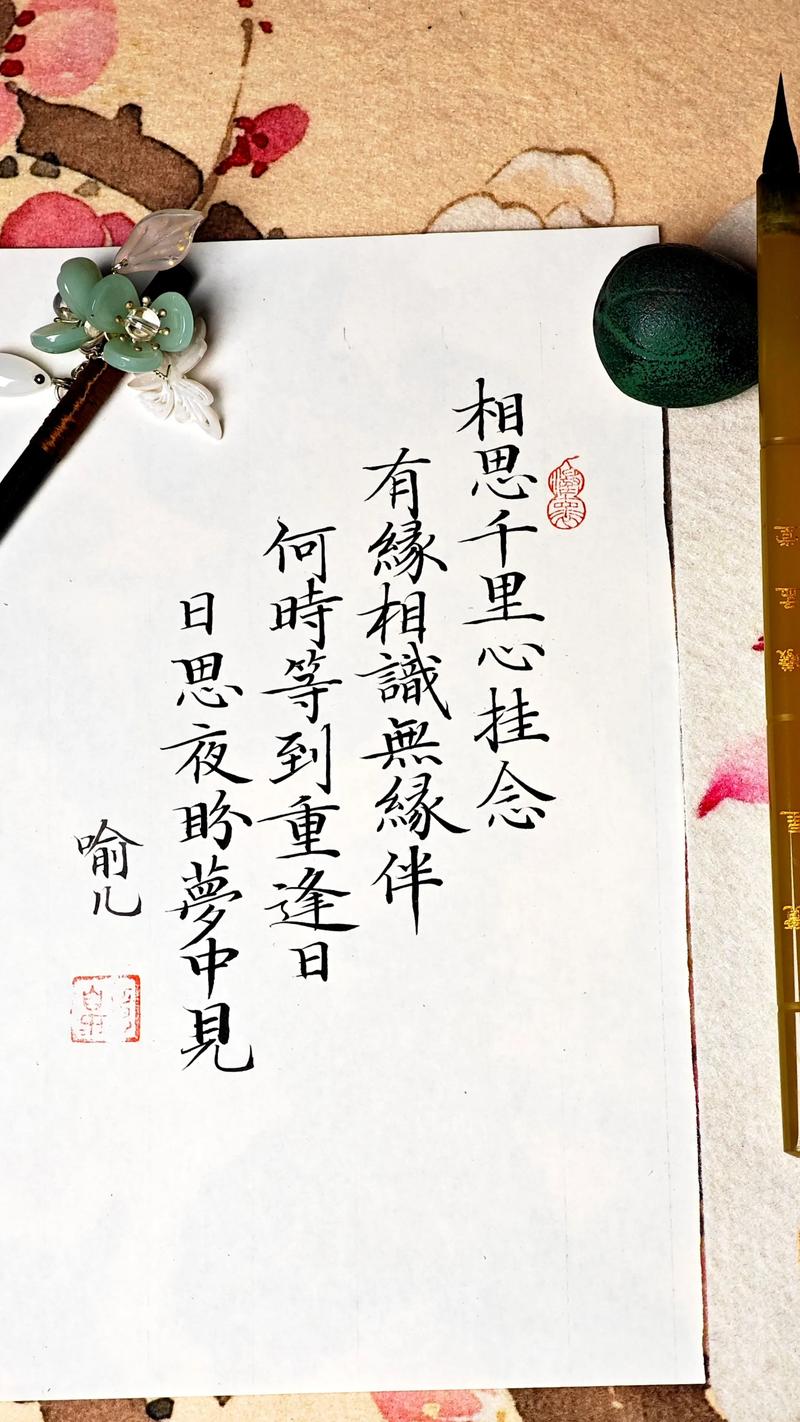 相思千里心挂念
有緣相識無緣伴
何時等到重逢日
日思夜盼夢中見
喻儿